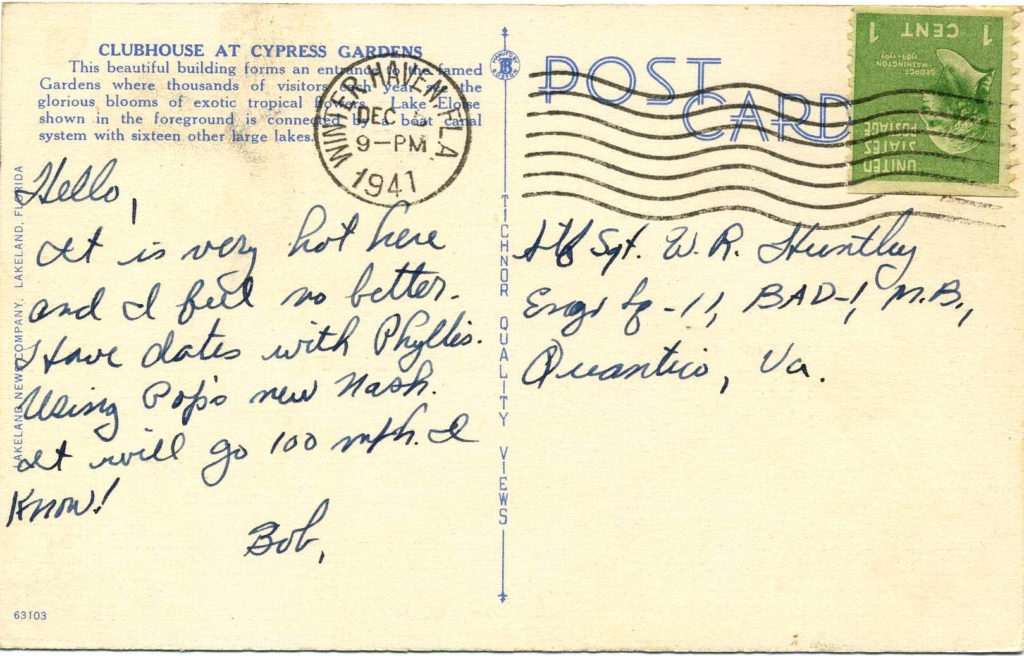 CLUBHOUSE AT CYPRESS GARDENS
This beautiful building forms an entrance to the famed
Gardens where thousands of visitors each year see the
glorious blooms of exotic tropical flowers. Lake Eloise
shown in the foreground is connected by a boat canal
system with sixteen other large lakes.
WINTER HAVEN, FLA.
DEC
9-PM
1941
Hello,
It is very hot here
and I feel no better.
Have dates with Phyllis.
Using Pop's new Nash.
It will go 100 mph. I
Know!
Bob,
LAKELAND NEWS COMPANY, LAKELAND, FLORIDA
63103
TICHNOR QUALITY VIEWS
POST
CARD
1 CENT 1
GEORGE
WASHINGTON
1789-1797
UNITED
STATES
POSTAGE
Sgt. W. R. Huntley
-11, BAD-1, M.B.,
Quantico, Va.